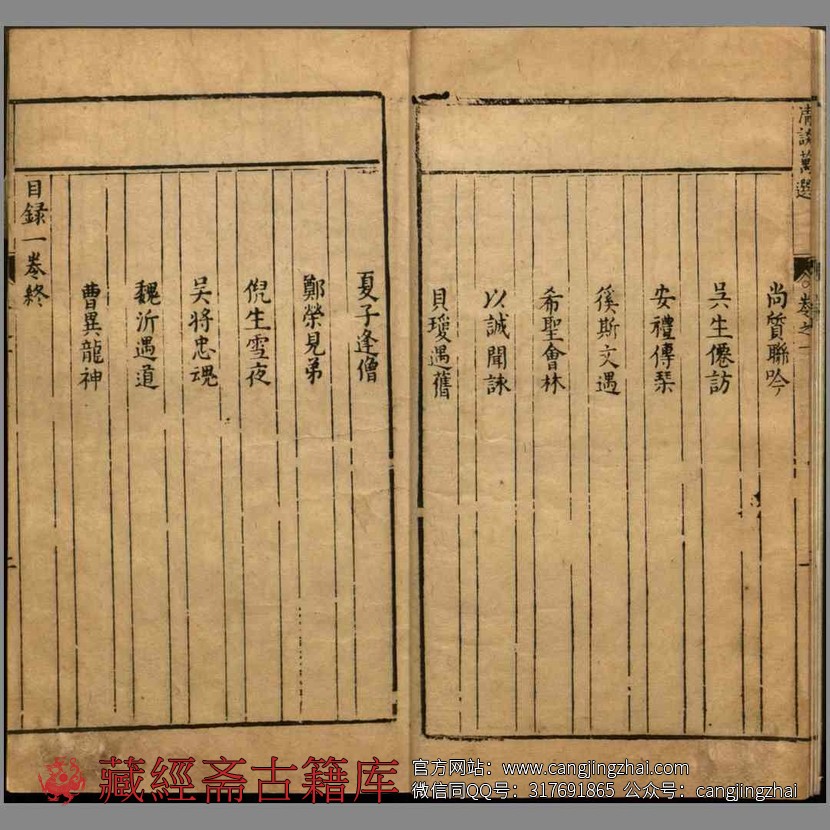 清談萬選
卷之一
尚質聯吟
吳生僊訪
安禮傳琹
徯斯文遇
希聖會林
以誠聞詠
貝瓊遇舊
夏子逢僧
鄭榮見弟
倪生雪夜
吳將忠魂
魏沂遇道
曹異龍神
目録一卷終
藏經斋古籍库
官方网站：www.cangjingzhai.com
微信同QQ号：317691865 公众号：cangjingzhai